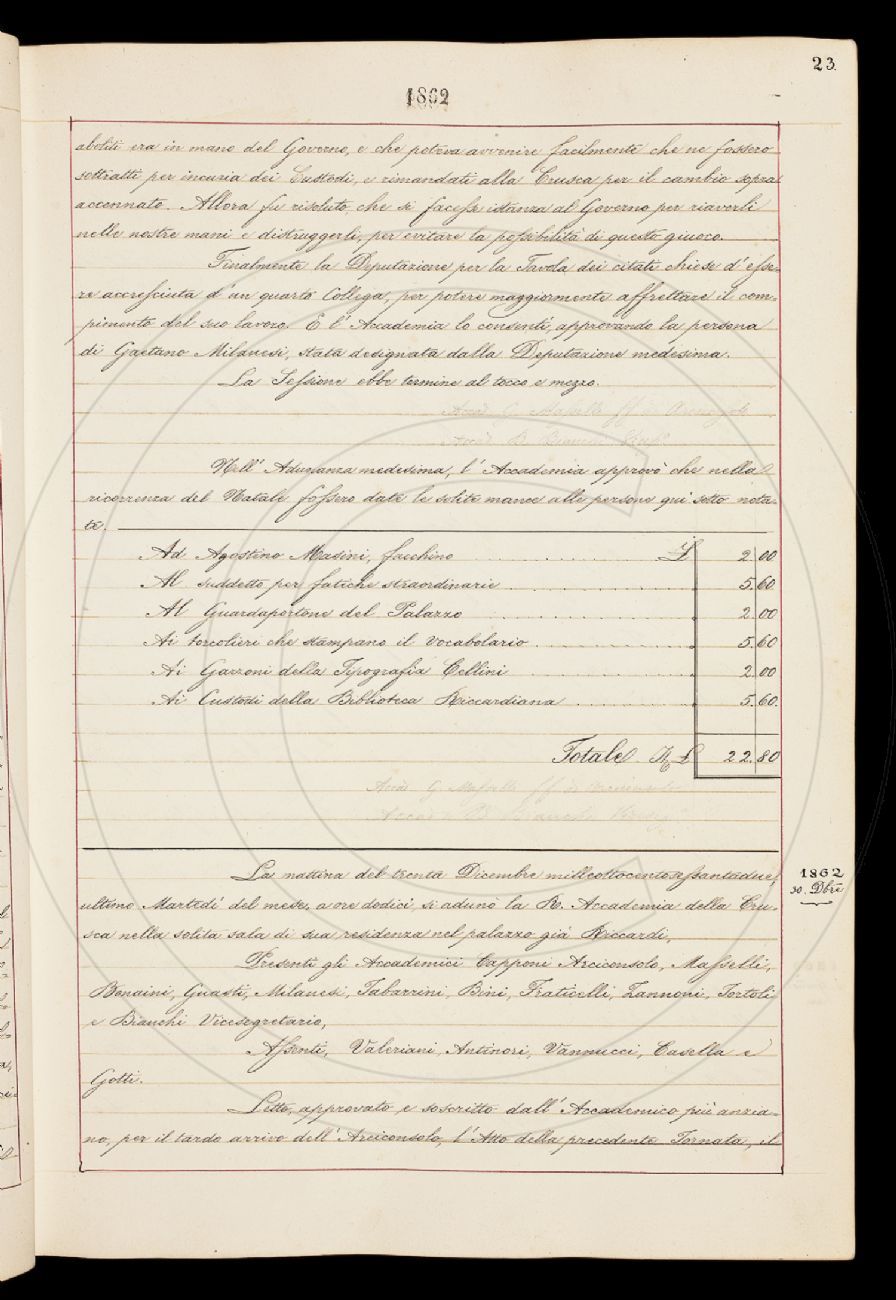 23
1862
aboliti era in mano del Governo, e che poteva avvenire facilmente che ne fossero
sottratti per incuria dei Custodi, e rimandati alla Crusca per il cambio sopra
accennato. Allora fu risoluto, che si facesse istanza al Governo per riaverli
nelle nostre mani e distruggerli, per evitare la possibilità di questo giuoco.
Finalmente la Deputazione per la Tavola dei citati chiese d'esse-
re accresciuta d'un quarto Collega, per potere maggiormente affrettare il com-
pimento del suo lavoro. E l'Accademia lo consentì, approvando la persona
di Gaetano Milanesi, stata designata dalla Deputazione medesima.
La Sessione ebbe termine al tocco e mezzo.
Accad. G. Masselli ff. di Arciconsolo
Accad. B. Bianchi Viceseg.
Nell'Adunanza medesima, l'Accademia approvò che nella
ricorrenza del Natale fossero date le solite mance alle persone qui sotto nota-
te.
Ad Agostino Masini, facchino £ 2 00
Al suddetto per fatiche straordinarie 5.60
Al Guardaportone del Palazzo 2 00
Ai torcolieri che stampano il Vocabolario 5.60
Ai Garzoni della Tipografia Cellini 2.00
Ai Custodi della Biblioteca Riccardiana 5.60.
Totale £ 22.80
Accad. G. Masselli ff. di Arciconsolo
Accad. B. Bianchi Viceseg.
La mattina del trenta Dicembre milleottocentosessantadue,
1862
30. Dbre
ultimo Martedì del mese, a ore dodici, si adunò la R. Accademia della Cru-
sca nella solita sala di sua residenza nel palazzo già Riccardi,
Presenti gli Accademici Capponi Arciconsolo, Masselli,
Bonaini, Guasti, Milanesi, Tabarrini, Bini, Fraticelli, Zannoni, Tortoli
e Bianchi Vicesegretario,
Assenti, Valeriani, Antinori, Vannucci, Casella e
Gotti.
Letto, approvato e soscritto dall'Accademico più anzia-
no, per il tardo arrivo dell'Arciconsolo, l'Atto della precedente Tornata, il